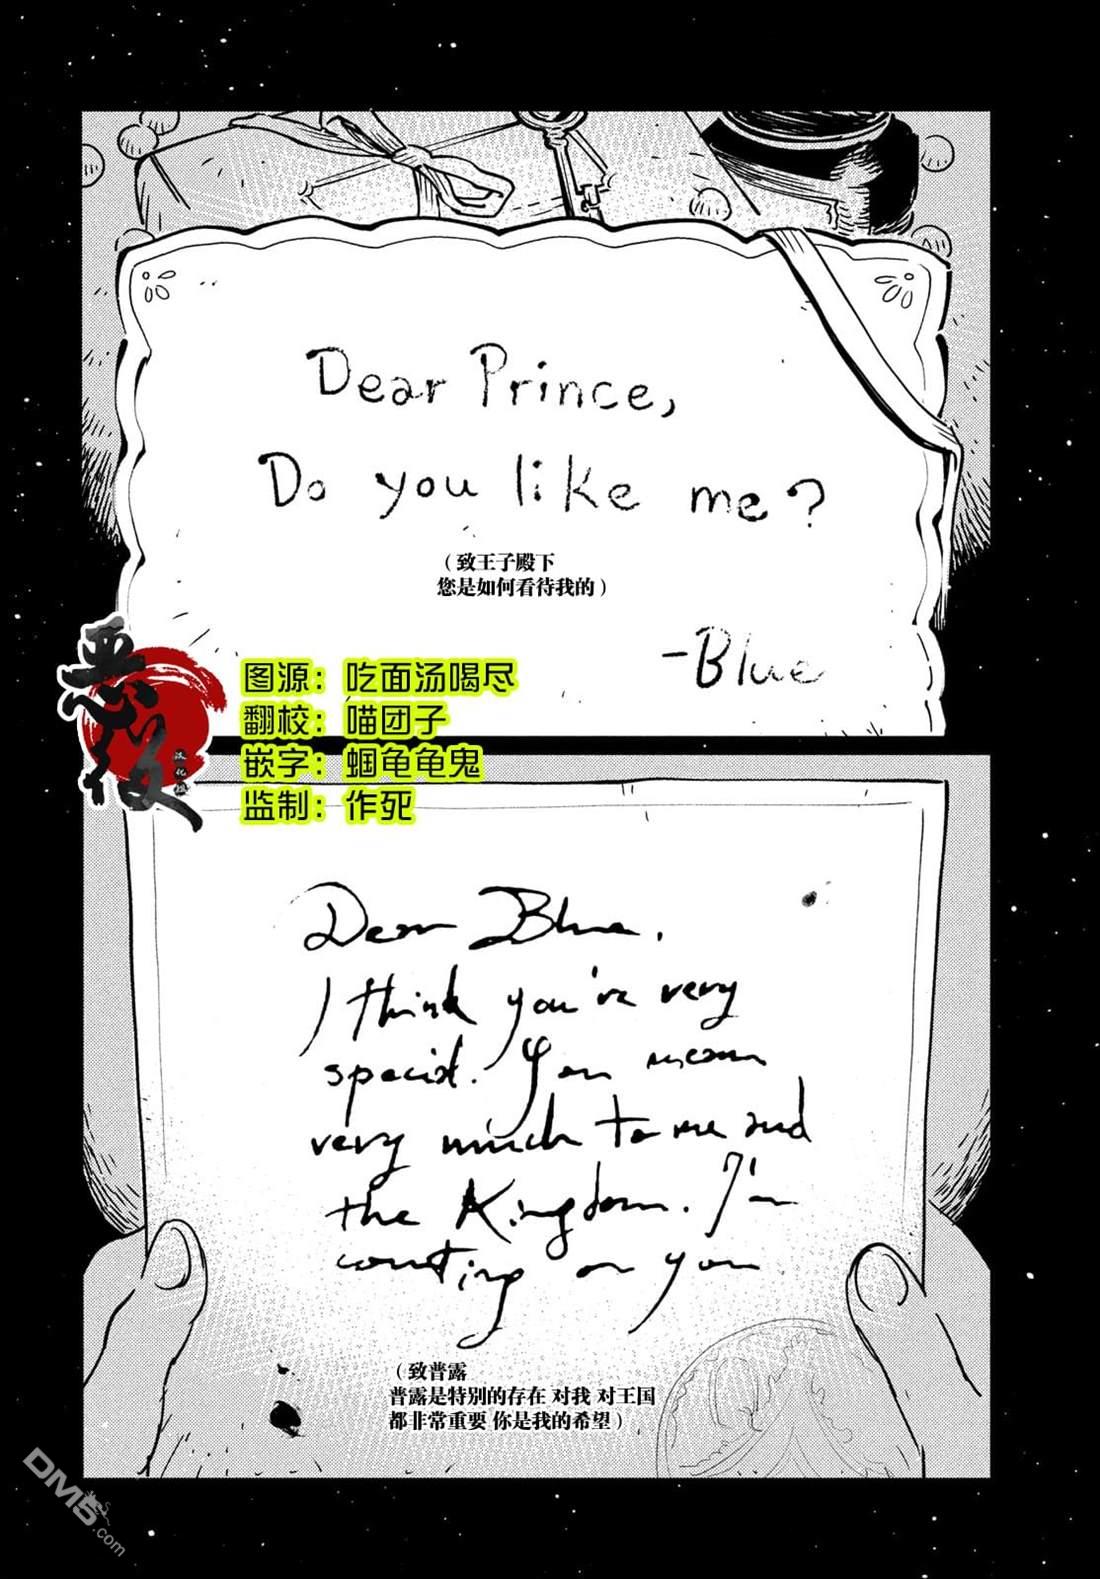 Dear Prince,
Do you like me?
（致王子殿下
您是如何看待我的）
-Blue
恶役
汉化组
图源：吃面汤喝尽
翻校：喵团子
嵌字：蝈龟龟鬼
监制：作死
Dear Blue.
I think you're very
special. You mean
very much to me and
the Kingdom. I'm
counting on you
（致普露
普露是特别的存在 对我 对王国
都非常重要 你是我的希望）
DM5
.com